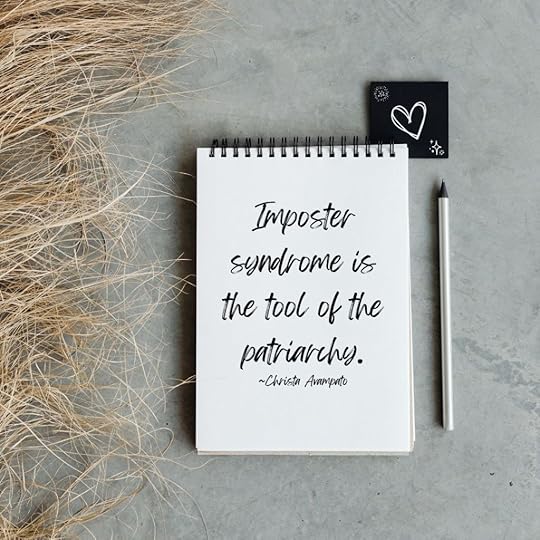 Imposter
syndrome is
the tool of the
patriarchy.
~Christa Avampato